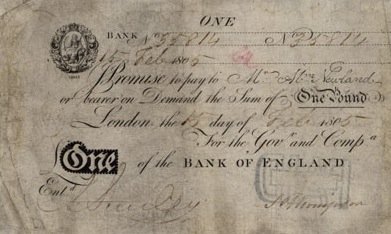 ONE
BANK No 35814 No 35814
15 Feb 1805
Promise to pay to Mr. Abm. Newland
or bearer on Demand the Sum of One Pound
London the 15 day of Feb 1805
For the Govr. and Compa
One of the BANK OF ENGLAND
Entd.